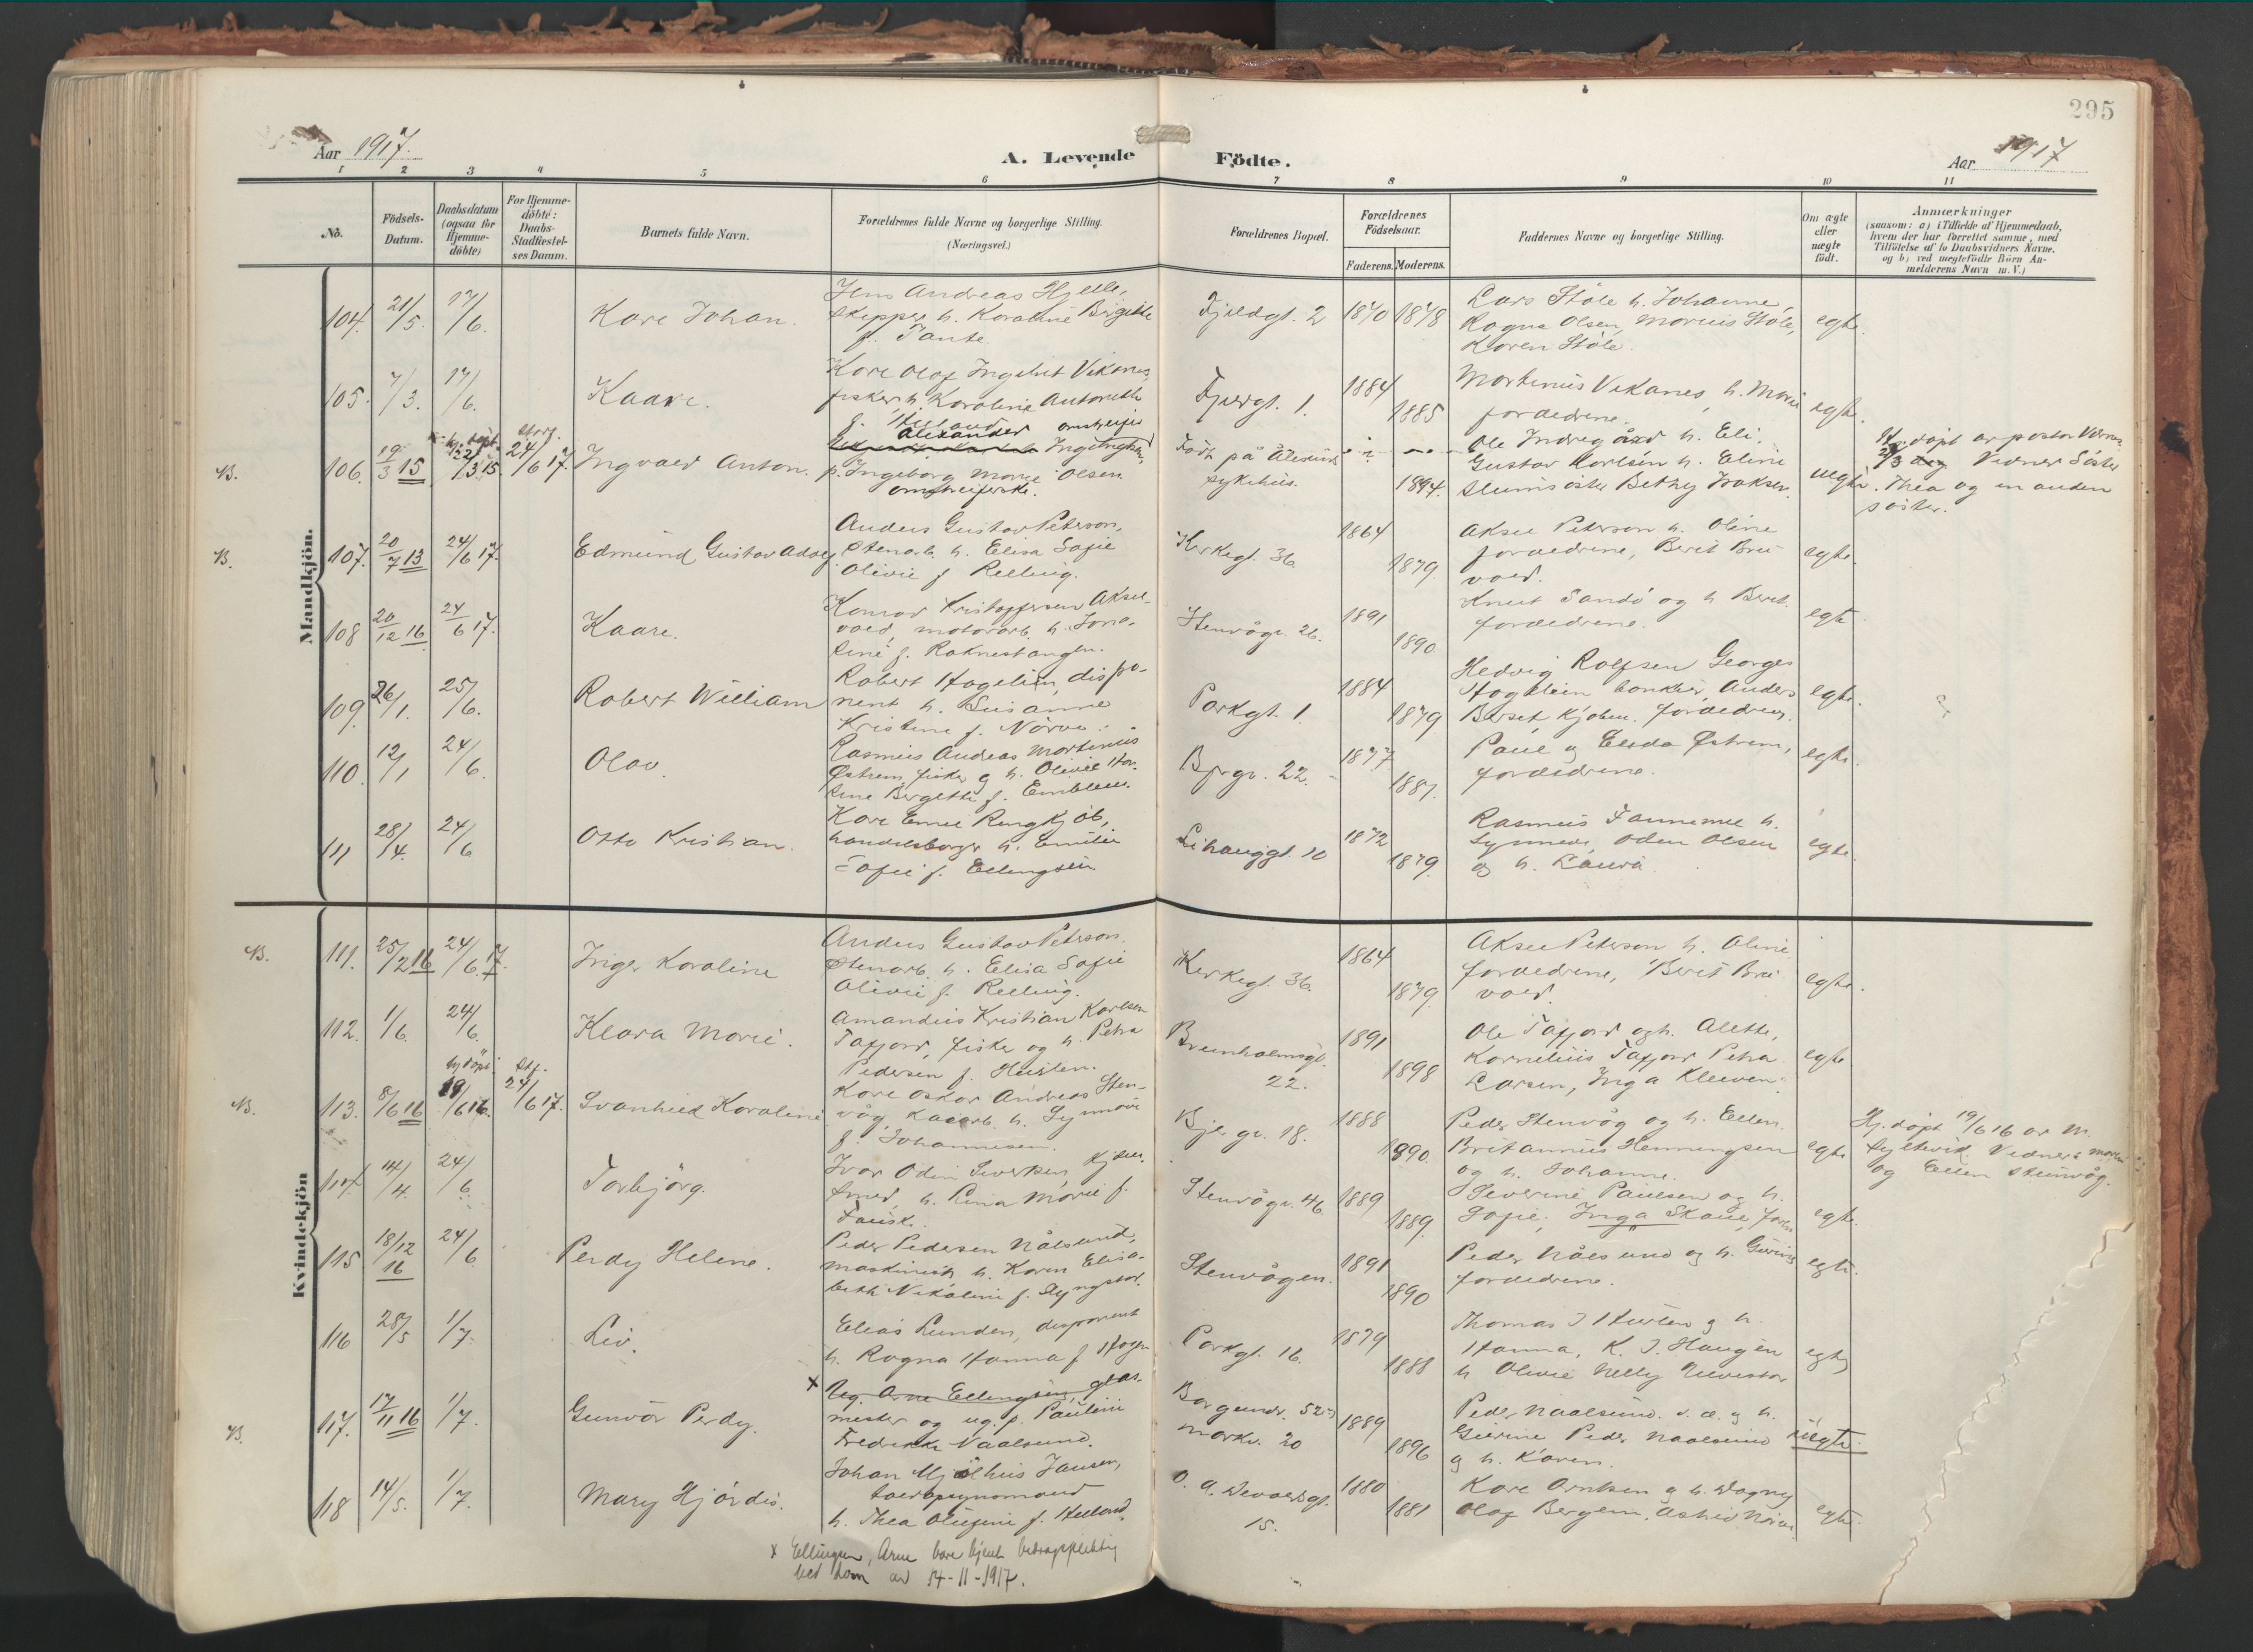 295
Aar 1917.
A. Levende
Födte.
Aar 1917
1 2 3 4 5 6 7 8 9 10 11
No.
Födsels-Datum.
Daabsdatum (ogsaa for Hjemme-döbte)
For Hjemme-döbte: Daabs-Stadfæstel-ses Datum.
Barnets fulde Navn.
Forældrenes fulde Navne og borgerlige Stilling. (Næringsvei.)
Forældrenes Bopæl.
Forældrenes Födselsaar.
Faderens. Moderens.
Faddernes Navne og borgerlige Stilling.
Om ægte eller uægte födt.
Anmærkninger
(saasom: a) i Tilfælde af Hjemmedaab,
hvem der har forrettet samme, med
Tilföielse af to Daabsvidners Navne.
og b) ved uegtefödte Börn An-
melderens Navn m. V.)
Mandkjön.
104. 21/5. 17/6. Kare Johan.
Jens Andreas Hjelle,
skipper h. Karoline Birgitte
f. Tante.
Fjeldgt. 2 1870 1878
Lars Støle h. Johanne,
Ragna Olsen, Marius Støle,
Karen Støle.
egte.
105. 7/3. 17/6. Kaare.
Kare Olaf Ingebret Vikanes,
fisker h. Karoline Antonette
Fjergt. 1. 1884 1885
Martinus Vikanes, h. Marie
foraldrene.
egte.
B. 106. 19/3 15 22/3 15. 24/6 17. Ingvald Anton.
Alexander omstreifer
p. Ingeborg Marie Olsen
omstreiferske.
Født på Ålesund
sykehus. 1894.
Ole Indregård h. Eli.
Gustav Karlsen h. Eline
Slumsøster Bethy Isaksen.
uegte.
Hj. døpt av pastor
Vidner Søster
Thea og en anden
søster.
B. 107. 20/7 13 24/6 17. Edmund Gustav Adolf
Anders Gustav Peterson,
Stenarb. h. Elisa Sofie
Olivie f. Relling.
Kirkegt. 36. 1864 1879
Aksel Peterson h. Oline
foraldrene, Berit Bru-
vold.
egte.
108 20/12 16 24/6 17. Kaare.
Konrad Kristoffersen Aksel-
vold, motorarb. h. Jona-
Stenvågv. 26. 1891 1890.
Knut Sandø og h. Berit.
foraldrene.
egte
109. 26/1. 25/6. Robert William
Robert Hagelien, dispo-
nent h. Susanne
Kristine f. Nørve.
Parkgt. 1. 1884 1879
Hedvig Rolfsen Georges
Hagelien bankier, Anders
Barset Kjøbm. foraldrene.
egte.
110. 12/1 24/6. Olav.
Rasmus Andreas Martinus
Østrem, fisker g h. Olivie
Bergette f. Emblem.
Bjrgv. 22. 1877 1887.
Paul g Elida Østrem,
foraldrene.
egte.
111 28/4. 24/6 Otto Kristian.
Kare Emil Ringkjøb,
handelsborger h. Emilie
Sofie f. Ellingsen
Lihauggt. 10 1872 1879.
Rasmus Fannemel h.
Synnøve, Oden Olsen
og h. Laura.
egte.
Kvindekjön
B. 111. 25/2 16 24/6. 17. Inger Karoline
Anders Gustav Peterson.
Stenarb. h. Elisa Sofie
Olivie f. Relling.
Kirkegt. 36. 1864 1879.
Aksel Peterson h. Oline
foraldrene, Berit Bru-
vold.
egte.
112. 1/6. 24/6. Klara Marie.
Amandus Kristian Karlsen
Tafjord, fisker og h. Petra
Pedersen f.
Brunholmsgt.
22. 1891 1898
Ole Tafjord og h. Alette,
Kornelius Tafjord Petra
Larsen, Inga Kleiven.
egte
B. 113. 8/6 16 hj. døpt 19/6 16. Stf. 24/6 17. Svanhild Karoline
Kare Oskar Andreas Sten-
våg, h. Synnøve
f. Johannesen.
Bjergv. 18. 1888 1890.
Peder Stenvåg og h. Ellen.
Britannus Henningsen
og h. Johanne.
egte
Hj. døpt 19/6 16 av M.
Vidner:
og Ellen Stenvåg.
114 14/4. 24/6. Torbjörg.
Ivar Odin Sivertsen, Kjøbm.
h. Lina Marie f.
Stenvågv. 46. 1889 1889.
Severine Paulsen og h.
Sofie, Inga Skaue
egte.
115 18/12 16 24/6. Perdy Helene.
Peder Pedersen Nålsund,
maskinist h. Karen Elisa-
beth Nikoline f. Slyngstad.
Stenvågen. 1891 1890
Peder Nålsund og h. Gurine
foraldrene.
egte.
116 28/5 1/7. Liv.
Elias Lunden, disponent
h. Ragna Hanna f
Parkgt. 16. 1879 1888
Thomas J Husler g h.
Hanna, K. J. Haugen
h Olivie Nelly
egte
B. 117. 17/11 16 1/7. Gunvor Perdy.
x Ug. Arne Ellingsen, glas-
mester og ug. p. Pauline
Fredrikke Naalsund.
Borgundv. 52
Markv. 20 1889 1896
Peder Naalsund. s. æ. g h.
Gurine Peder Naalsund
g h. Karen.
uegte.
118 14/5. 1/7. Mary Hjördis.
Johan Jansen,
h. Thea Olufine f. Helland.
O. A. Devoldsgt.
15. 1880 1881
Kare Arntsen g h. Dagny
Olaf Bergem. Astrid
egte.
x Ellingsen, Arne bare kjent bidragspliktig
ved dom av 14-11-1917.